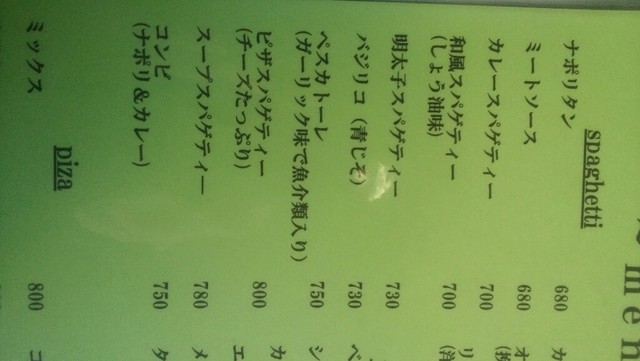 men
spaghetti
ナポリタン 680
ミートソース 680
カレースパゲティー 700
和風スパゲティー
(しょう油味) 700
明太子スパゲティー 730
バジリコ(青じそ) 730
ペスカトーレ
(ガーリック味で魚介類入り) 750
ピザスパゲティー
(チーズたっぷり) 800
スープスパゲティー 780
コンビ
(ナポリ&カレー) 750
piza
ミックス 800